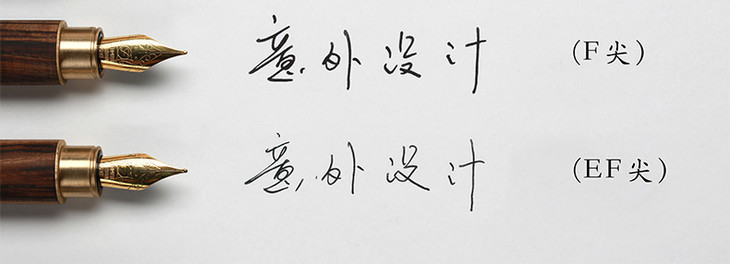 意外设计 (F尖)
意外设计 (EF尖)